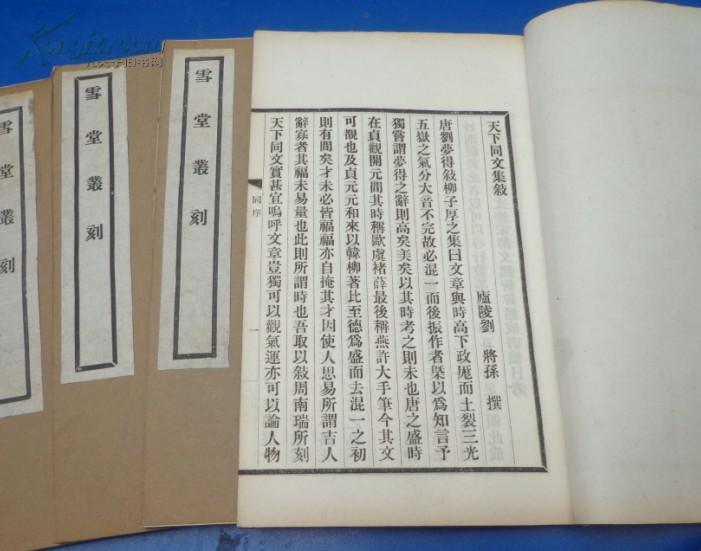 雪堂叢刻
雪堂叢刻
雪堂叢刻
天下同文集敍
廬陵劉 將孫 撰
唐劉夢得敍柳子厚之集曰文章與時高下政厖而土裂三光
五嶽之氣分大音不完故必混一而後振作者槩以爲知言予
獨嘗謂夢得之辭則高矣美矣以其時考之則未也唐之盛時
在貞觀開元間其時稱歐虞褚薛最後稱燕許大手筆今其文
可覩也及貞元元和來以韓柳著比至德爲盛而去混一之初
則有間矣才未必皆福福亦自掩其才因使人思易所謂吉人
辭寡者其福未易量也此則所謂時也吾取以敍周南瑞所刻
天下同文實甚宜嗚呼文章豈獨可以觀氣運亦可以論人物
同序
一